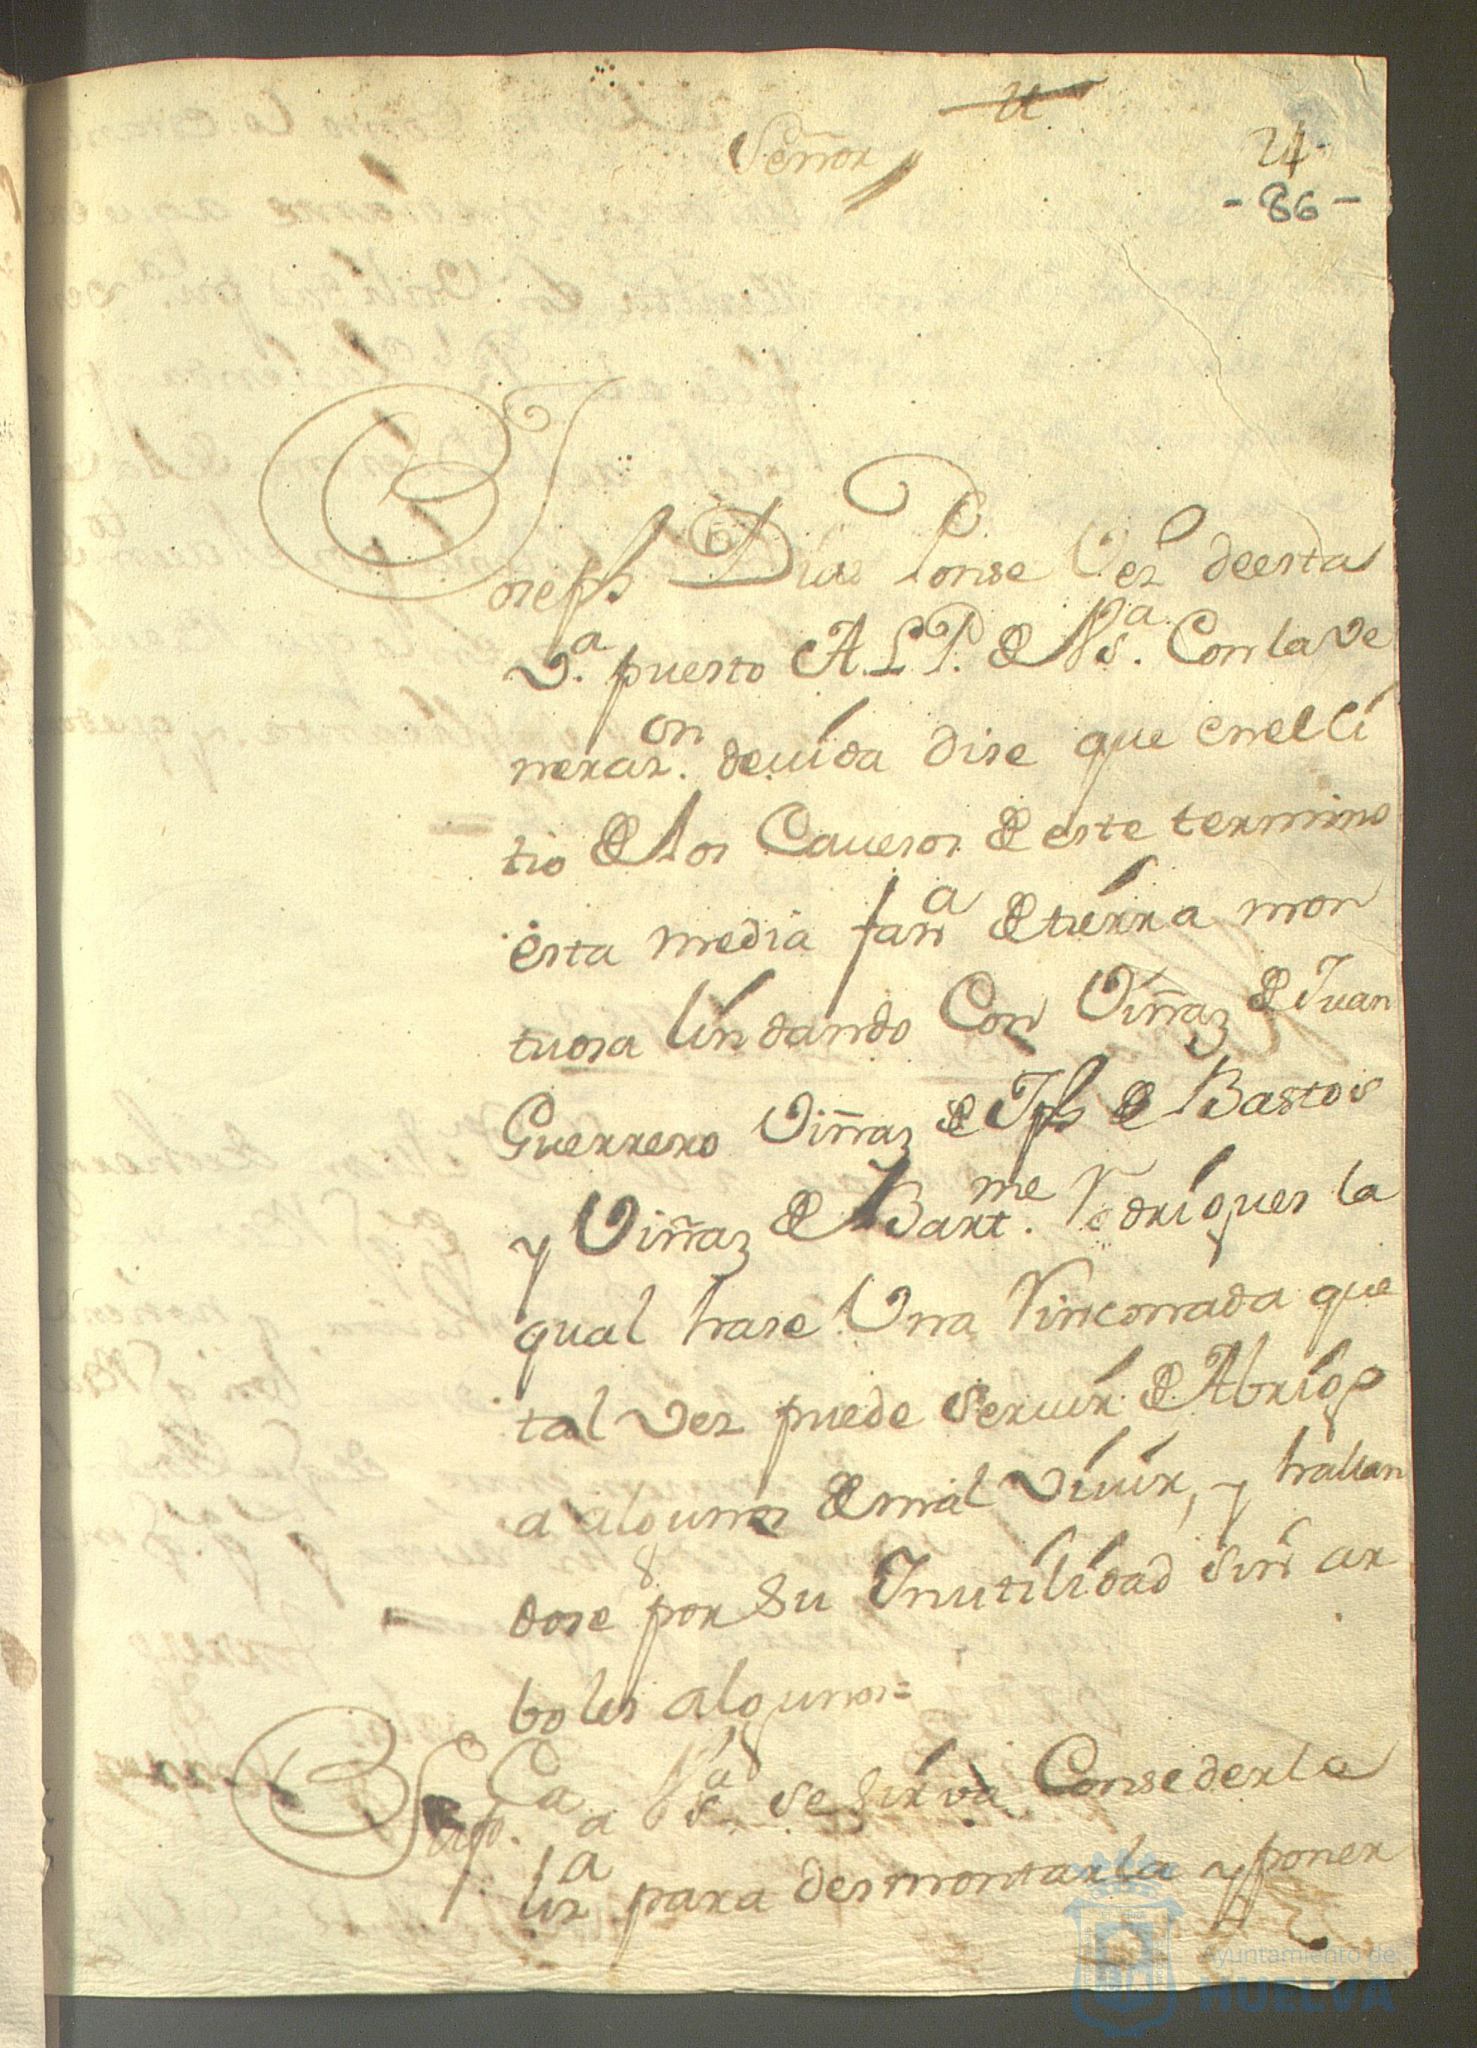 Señor
24
- 86 -
Joseph Dias Ponse Vez.º de esta
V.ª puesto A L P. de Vs.ª Con la ve
neraz.on deuida dise que en el çi
tio de los Caueros de este termino
esta media fanª de tierra mon
tuosa lindando Con Viñaz de Juan
Guerrero Viñaz de Jph de Bastos
y Viñaz de Bart.me Rodrigues la
qual hase Una Rinconada que
tal vez puede seruir de Abrigo
a algunos de mal viuir, y hallan
dose por su Inutilidad sin ar
boles algunos=
Supp.Ca a Vsª se sirva Consederle
lizª para desmontarla y poner
Ayuntamiento de
HUELVA